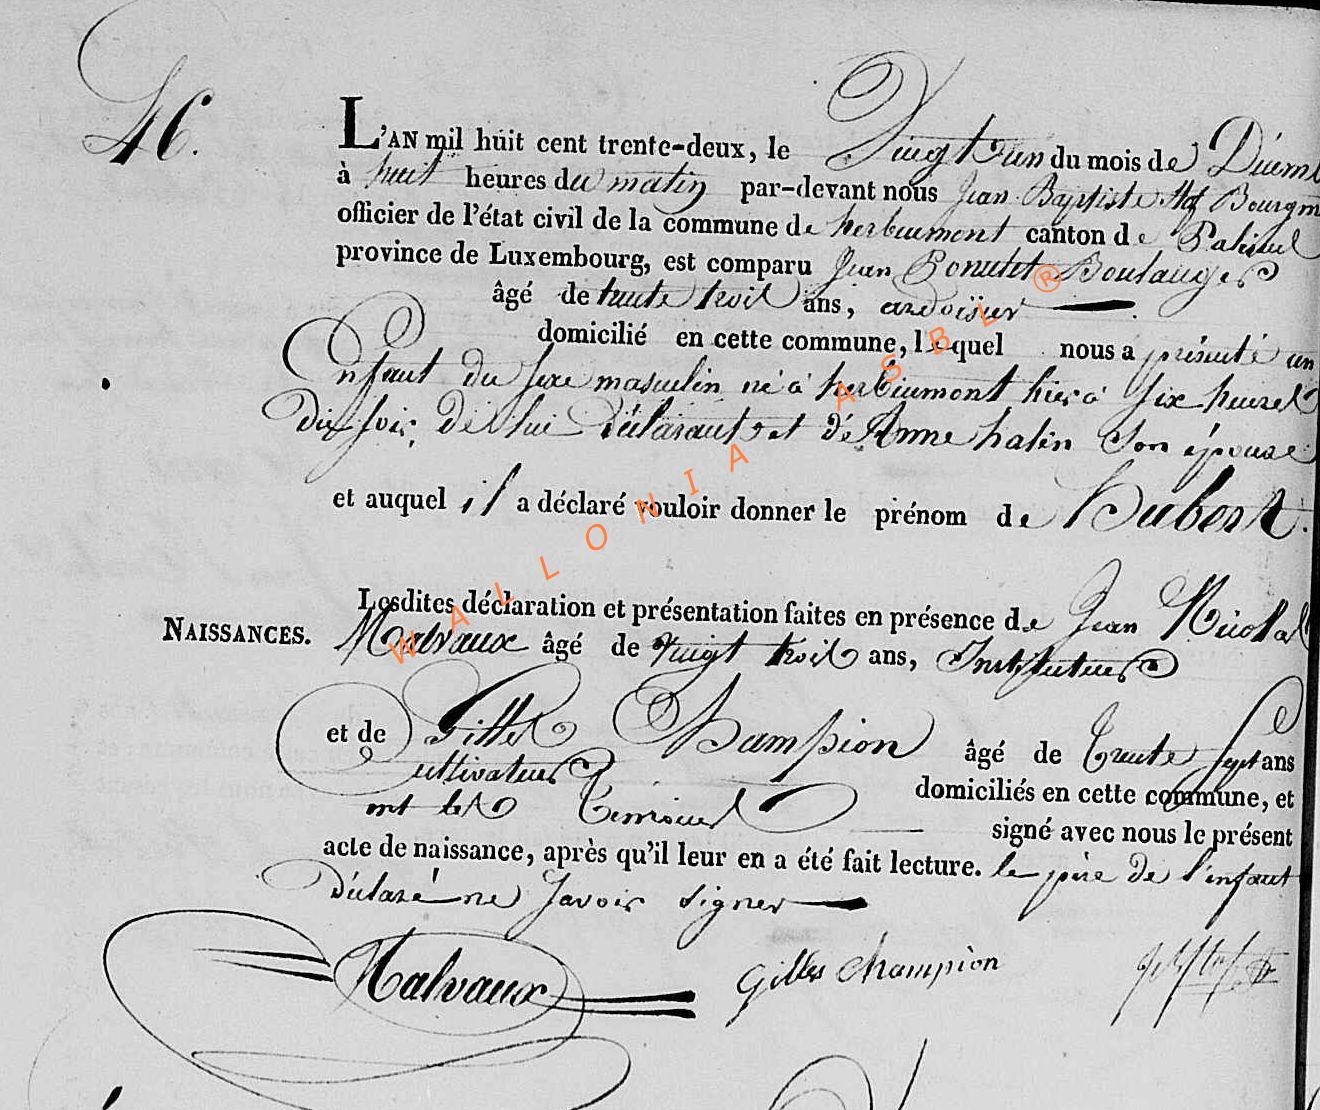 46.
L'AN mil huit cent trente-deux, le Vingt un du mois de Décemb
à huit heures du matin par-devant nous Jean Baptiste Bourgm
officier de l'état civil de la commune de herbeumont canton de Paliseul
province de Luxembourg, est comparu Jean Boulanger
âgé de trente trois ans, ardoisier
domicilié en cette commune, lequel nous a présenté un
Enfant du sexe masculin né à herbeumont hier à six heures
du soir, de lui déclarant, et de Anne halin son épouse
et auquel il a déclaré vouloir donner le prénom de Hubert.
NAISSANCES.
Lesdites déclaration et présentation faites en présence de Jean Nicolas
Malvaux âgé de vingt trois ans, Instituteur
et de Gilles Champion âgé de trente sept ans
Cultivateur domiciliés en cette commune, et
ont les Témoins signé avec nous le présent
acte de naissance, après qu'il leur en a été fait lecture. le père de l'enfant
Déclaré ne savoir signer
Malvaux Gilles Champion
WALLONIA ASBL ®